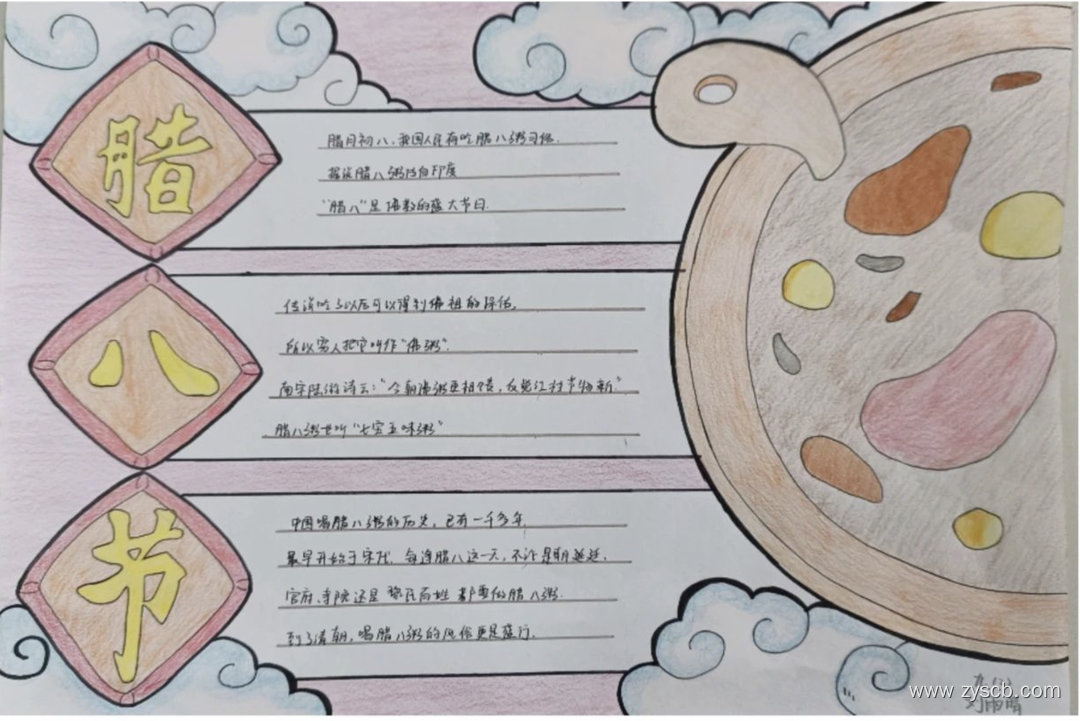 腊
八
节
腊月初八,我国人民有吃腊八粥习俗.
据说腊八粥传自印度
"腊八"是佛教的盛大节日.
传说吃了以后可以得到佛祖的保佑,
所以穷人把它叫作"佛粥".
南宋陆游诗云:"今朝佛粥更相馈,反觉江村节物新."
腊八粥也叫"七宝五味粥"
中国喝腊八粥的历史,已有一千多年
最早开始于宋代.每逢腊八这一天,不论是朝廷,
官府,寺院还是黎民百姓都要做腊八粥.
到了清朝,喝腊八粥的风俗更是盛行.
www.zyscb.com